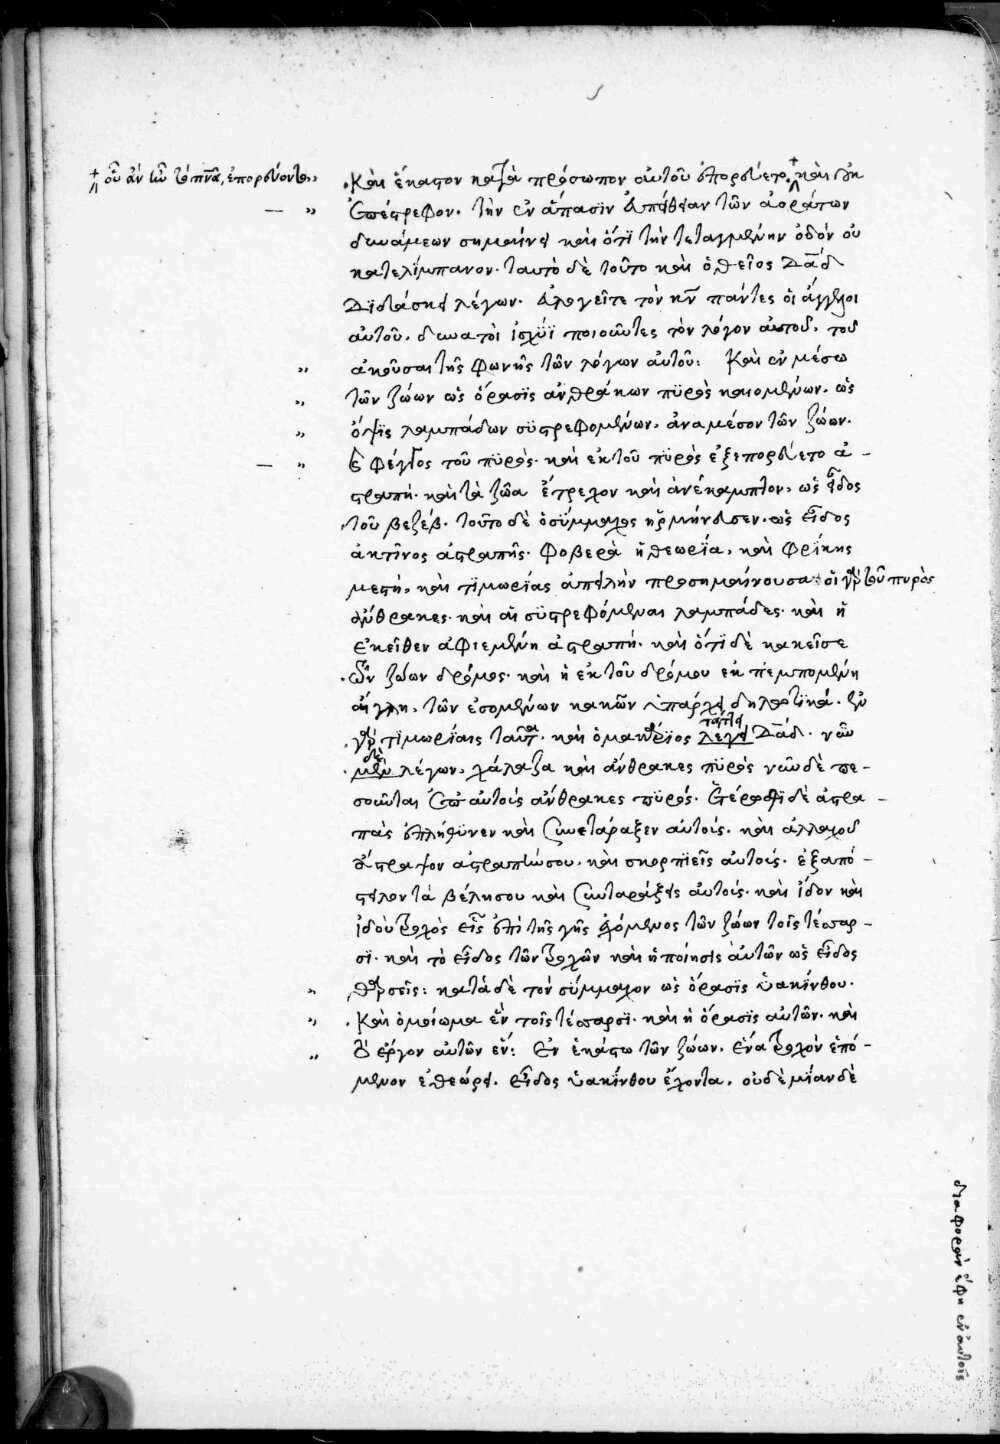 οὗ ἂν ἦν τὸ πνα, ἐπορεύοντο
Καὶ ἕκαστον κατὰ πρόσωπον αὐτοῦ ἐπορεύετο, καὶ οὐκ
ὑπέστρεφον. τὴν ἐν ἅπασιν εὐπείθειαν τῶν ἀοράτων
δυνάμεων σημαίνει καὶ ὅτι τὴν τεταγμένην ὁδὸν οὐ
κατελίμπανον. ταυτὸ δὲ τοῦτο καὶ ὁ θεῖος Δαδ
διδάσκει λέγων. εὐλογεῖτε τὸν κν πάντες οἱ ἄγγελοι
αὐτοῦ. δυνατοὶ ἰσχύϊ ποιοῦντες τὸν λόγον αὐτοῦ. τοῦ
ἀκοῦσαι τῆς φωνῆς τῶν λόγων αὐτοῦ: Καὶ ἐν μέσω
τῶν ζώων ὡς ὅρασϊς ἀνθράκων πϋρὸς καιομένων. ὡς
ὄψϊς λαμπάδων συστρεφομένων. ἀναμέσον τῶν ζώων.
φέγγος τοῦ πϋρὸς. καὶ ἐκ τοῦ πϋρὸς ἐξεπορεύετο ἀ-
στραπή. καὶ τὰ ζῶα ἔτρεχον καὶ ἀνέκαμπτον, ὡς εἶδος
τοῦ βεζέβ. τοῦτο δὲ ὁ σύμμαχος ἡρμήνευσεν. ὡς εἶδος
ἀκτῖνος ἀστραπῆς. φοβερὰ ἡ θεωρία, καὶ φρίκης
μεστή, καὶ τιμωρίας ἀπειλὴν προσημαίνουσα. οἱ γὰρ τοῦ πυρὸς
ἄνθρακες. καὶ αἱ συστρεφόμεναι λαμπάδες. καὶ ἡ
ἐκεῖθεν ἀφιεμένη ἀστραπή. καὶ ὅτι δὲ κακεῖσε
τῶν ζώων δρόμος. καὶ ἡ ἐκ τοῦ δρόμου ἐκπεμπομένη
αἴγλη, τῶν ἐσομένων κακῶν ὑπάρχει δηλωτικά.
γὰρ τιμωρίαις ταύτα. καὶ ὁ μακάριος ταττει λέγει Δαδ. νῦν
δὲ μὲν λέγων, χάλαζα καὶ ἄνθρακες πϋρός νῦν δὲ πε-
σοῦνται ἐπ αὐτοὺς ἄνθρακες πϋρός. ἑτέρωθι δὲ ἀστρα
πὰς ἐπλήθυνεν καὶ συνετάραξεν αὐτούς. καὶ ἀλλαχοῦ
ἄστραψον ἀστραπήν σου. καὶ σκορπϊεῖς αὐτούς. ἐξαπό-
στειλον τὰ βέλη σου καὶ συνταράξεις αὐτούς. καὶ ἴδον καὶ
ἰδοὺ τροχὸς εἷς ἐπὶ τῆς γῆς ἐχόμενος τῶν ζώων τοῖς τέσσαρ-
σϊ. καὶ τὸ εἶδος τῶν τροχῶν καὶ ἡ ποίησις αὐτῶν ὡς εἶδος
θαρσεῖς: κατὰ δὲ τὸν σύμμαχον ὡς ὅρασϊς ὑακίνθου.
Καὶ ὁμοίωμα ἓν τοῖς τέσσαρσϊ. καὶ ἡ ὅρασϊς αὐτῶν. καὶ
τὸ ἔργον αὐτῶν ἕν: Ἐν ἑκάστω τῶν ζώων. ἕνα τροχὸν ἑπό-
μενον ἐθεώρει. εἶδος ὑακίνθου ἔχοντα. οὐδεμίαν δὲ
διαφορὰν ἔφη ἐν αὐτοῖς